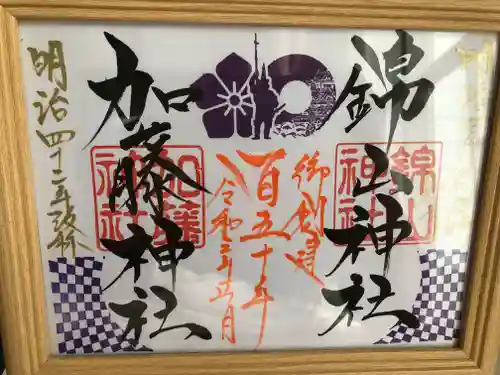 錦山神社
錦山
神社
御創建
百五十年
令和三年正月
加藤神社
加藤
神社
明治四十二年改称